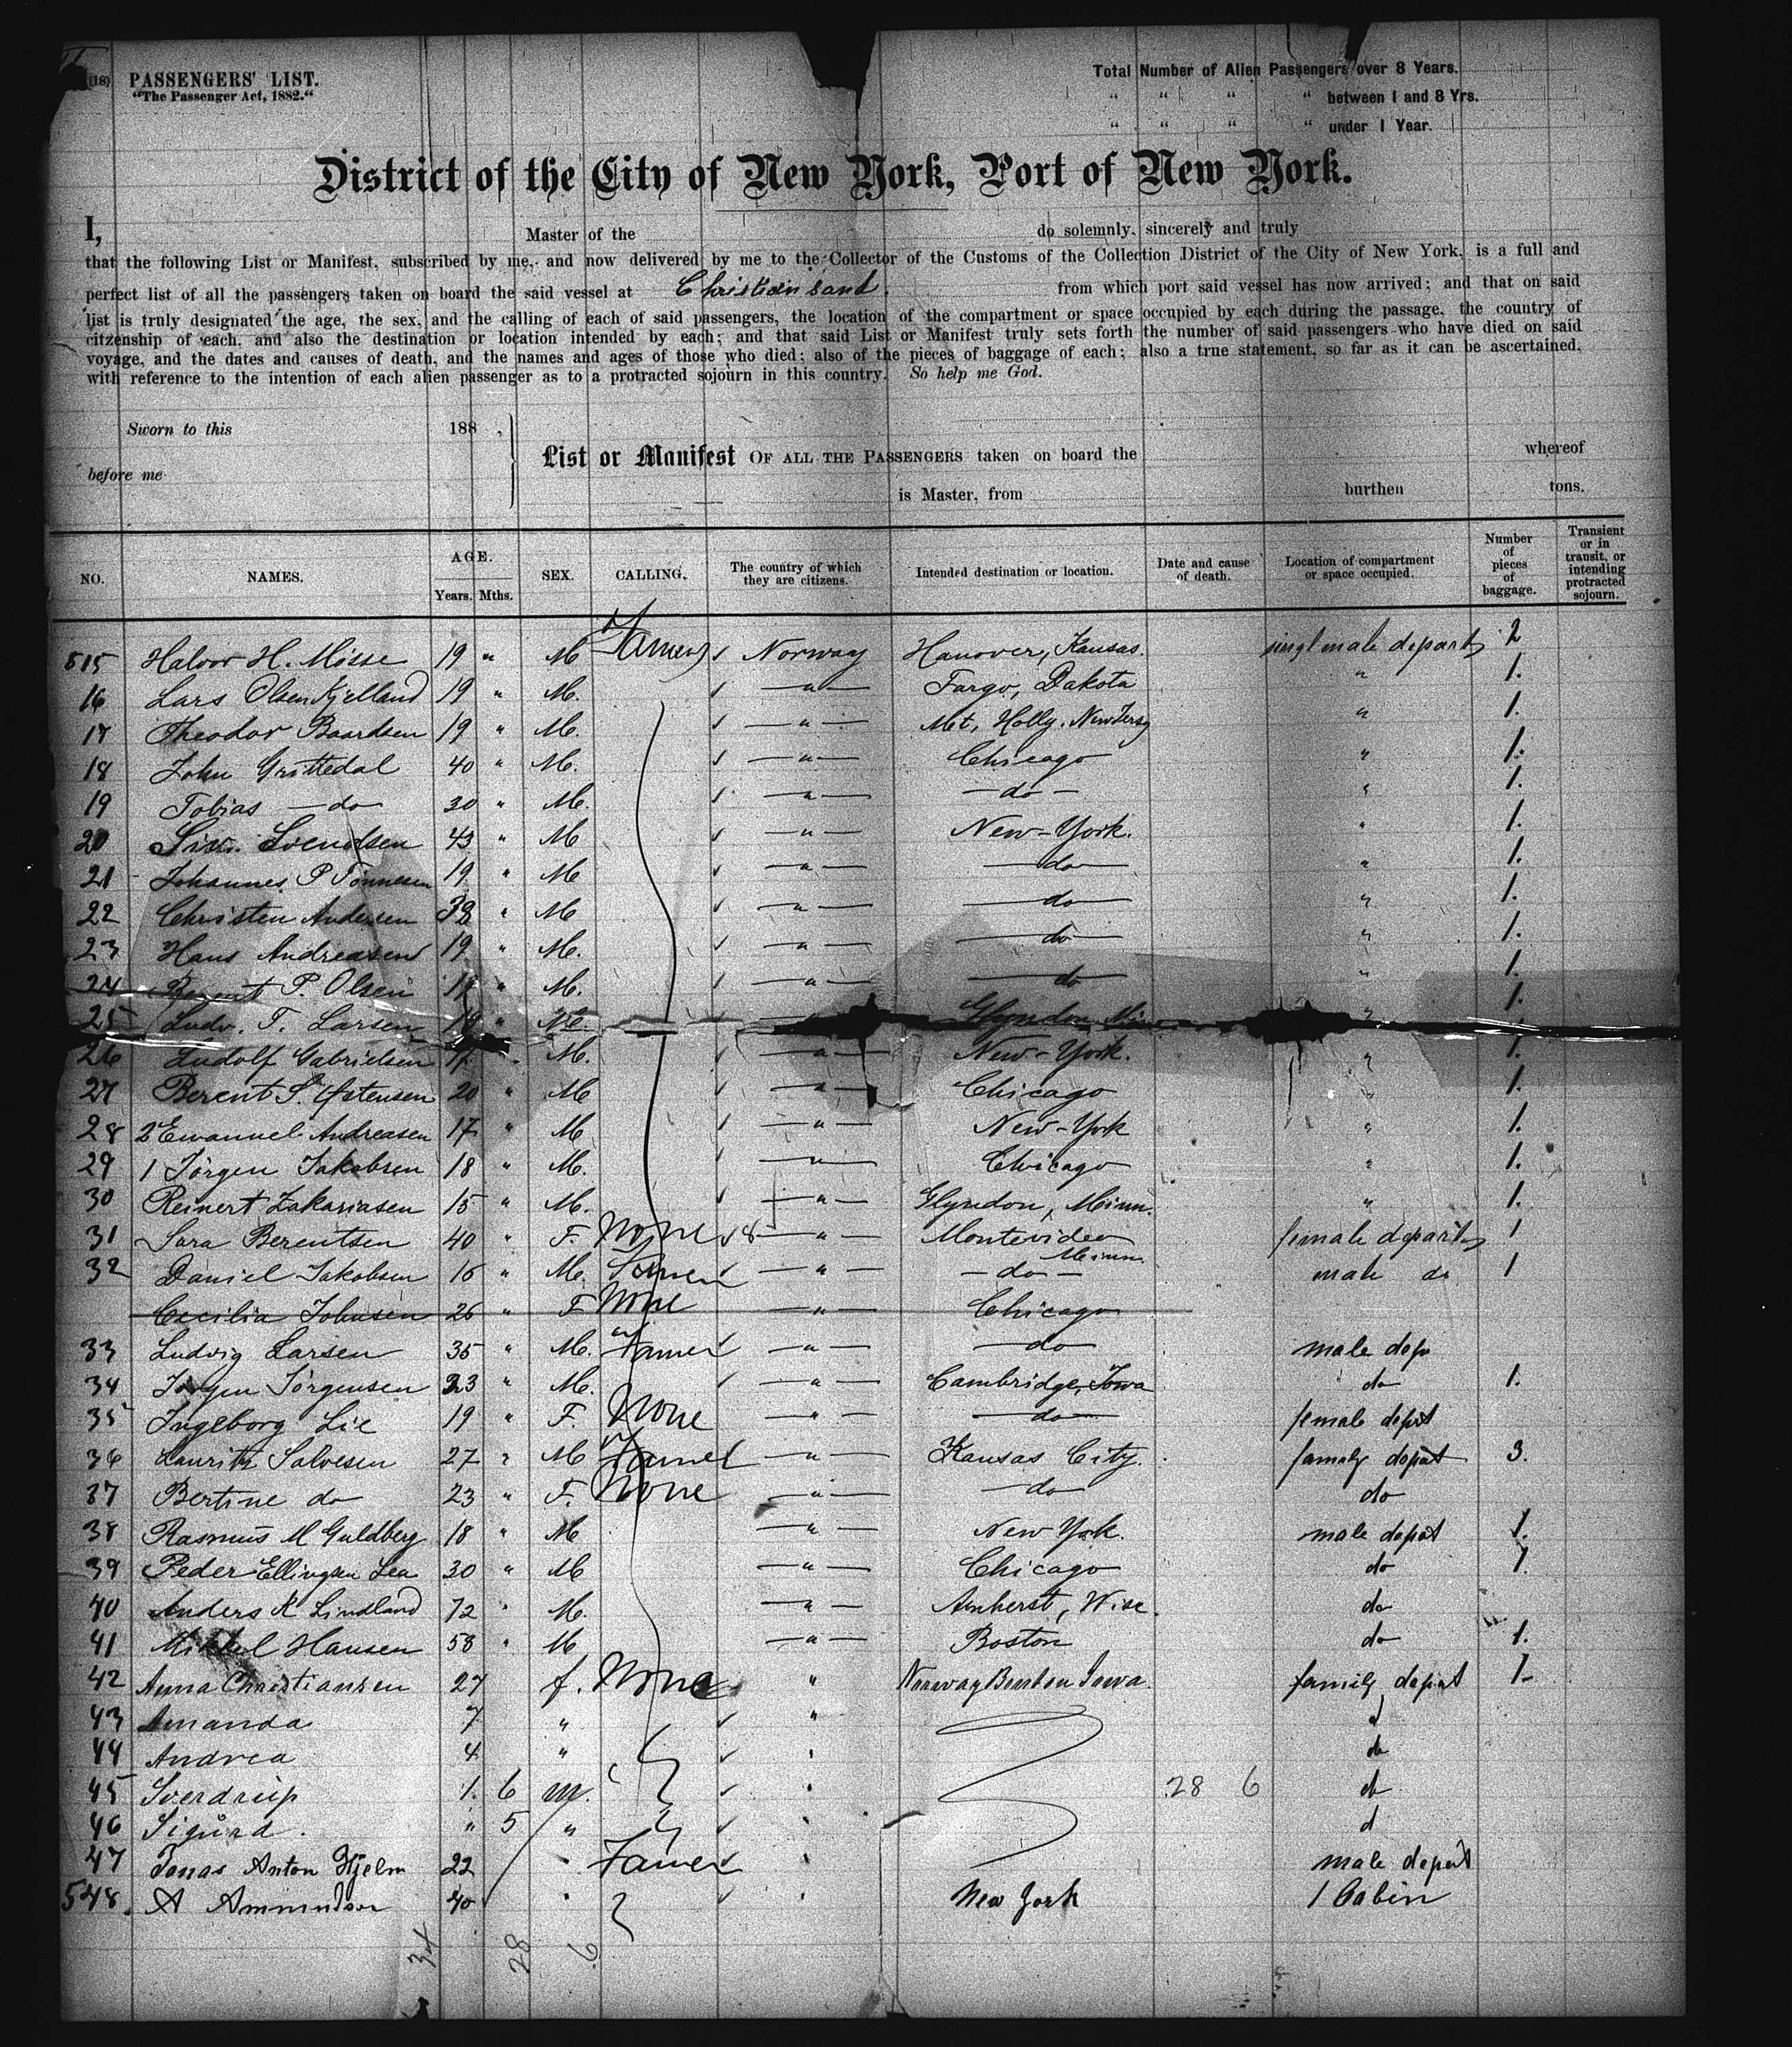 (18) PASSENGERS' LIST.
"The Passenger Act, 1882."
Total Number of Alien Passengers over 8 Years.
" " " " between 1 and 8 Yrs.
" " " " under 1 Year.
District of the City of New York, Port of New York.
I, Master of the do solemnly, sincerely and truly
that the following List or Manifest, subscribed by me, and now delivered by me to the Collector of the Customs of the Collection District of the City of New York, is a full and
perfect list of all the passengers taken on board the said vessel at Christiansand. from which port said vessel has now arrived; and that on said
list is truly designated the age, the sex, and the calling of each of said passengers, the location of the compartment or space occupied by each during the passage, the country of
citzenship of each, and also the destination or location intended by each; and that said List or Manifest truly sets forth the number of said passengers who have died on said
voyage, and the dates and causes of death, and the names and ages of those who died; also of the pieces of baggage of each; also a true statement, so far as it can be ascertained,
with reference to the intention of each alien passenger as to a protracted sojourn in this country. So help me God.
Sworn to this 188 ,
before me
List or Manifest OF ALL THE PASSENGERS taken on board the whereof
is Master, from burthen tons.
NO. NAMES. AGE. Years. Mths. SEX. CALLING. The country of which they are citizens. Intended destination or location. Date and cause of death. Location of compartment or space occupied. Number of pieces of baggage. Transient or in transit, or intending protracted sojourn.
515 Halvor H. Mosse 19 " M Farmer Norway Hanover, Kansas. singl male depart 2
16 Lars Olsen Kjelland 19 " M. " Fargo, Dakota " 1.
17 Theodor Baardsen 19 " M. " Mt, Holly. New Jersy " 1.
18 John Grittedal 40 " M. " Chicago " 1.
19 Tobias do 30 " M. " do " 1.
20 Svendsen 43 " M " New-York. " 1.
21 Johannes P Tonnesen 19 " M " do " 1.
22 Christen Andersen 38 " M " do " 1.
23 Hans Andreasen 19 " M. " do " 1.
24 Berent P. Olsen " M. " do " 1.
25 Ludv. T. Larsen 19 " M. Glyndon Minn " 1.
26 Ludolf Gabrielsen " M. " New-York. " 1.
27 Berent S. Östensen 20 " M " Chicago " 1.
28 2 Emanuel Andreasen 17 " M " New-York " 1.
29 1 Jörgen Jakobsen 18 " M. " Chicago " 1.
30 Reinert Zakariasen 15 " M. " Glyndon, Minn. " 1.
31 Sara Berentsen 40 " F. None " Montevideo Minn. female depart 1
32 Daniel Jakobsen 16 " M. Farmer " do male do 1
Cecilia Johnsen 26 " F None " Chicago
33 Ludvig Larsen 35 " M. Farmer " do male dep
34 Jörgen Jörgensen 23 " M. " Cambridge, Iowa do 1.
35 Ingeborg Lie 19 " F. None " do female depat
36 Lauritz Salvesen 27 " M Farmer " Kansas City. family depat 3.
37 Bertine do 23 " F. None " do do
38 Rasmus M Guldberg 18 " M " New York. male depat 1.
39 Peder Ellingsen Lea 30 " M " Chicago do 1.
40 Anders K Lindland 72 " M. " Amherst, Wisc. do
41 Mikkel Hansen 58 " M " Boston do 1.
42 Anna Christiansen 27 f. None " Norway Benton Iowa. family depat 1.
43 Amanda 7 " " d
44 Andrea 4 " " do
45 Sverdrup 1. 6 m. " 28 6 do
46 Sigurd. " 5 " " d
47 Jonas Anton Hjelm 22 " Farmer " male depat
548. A Ammundson 40 " " New York 1 Cabin
34 28 6